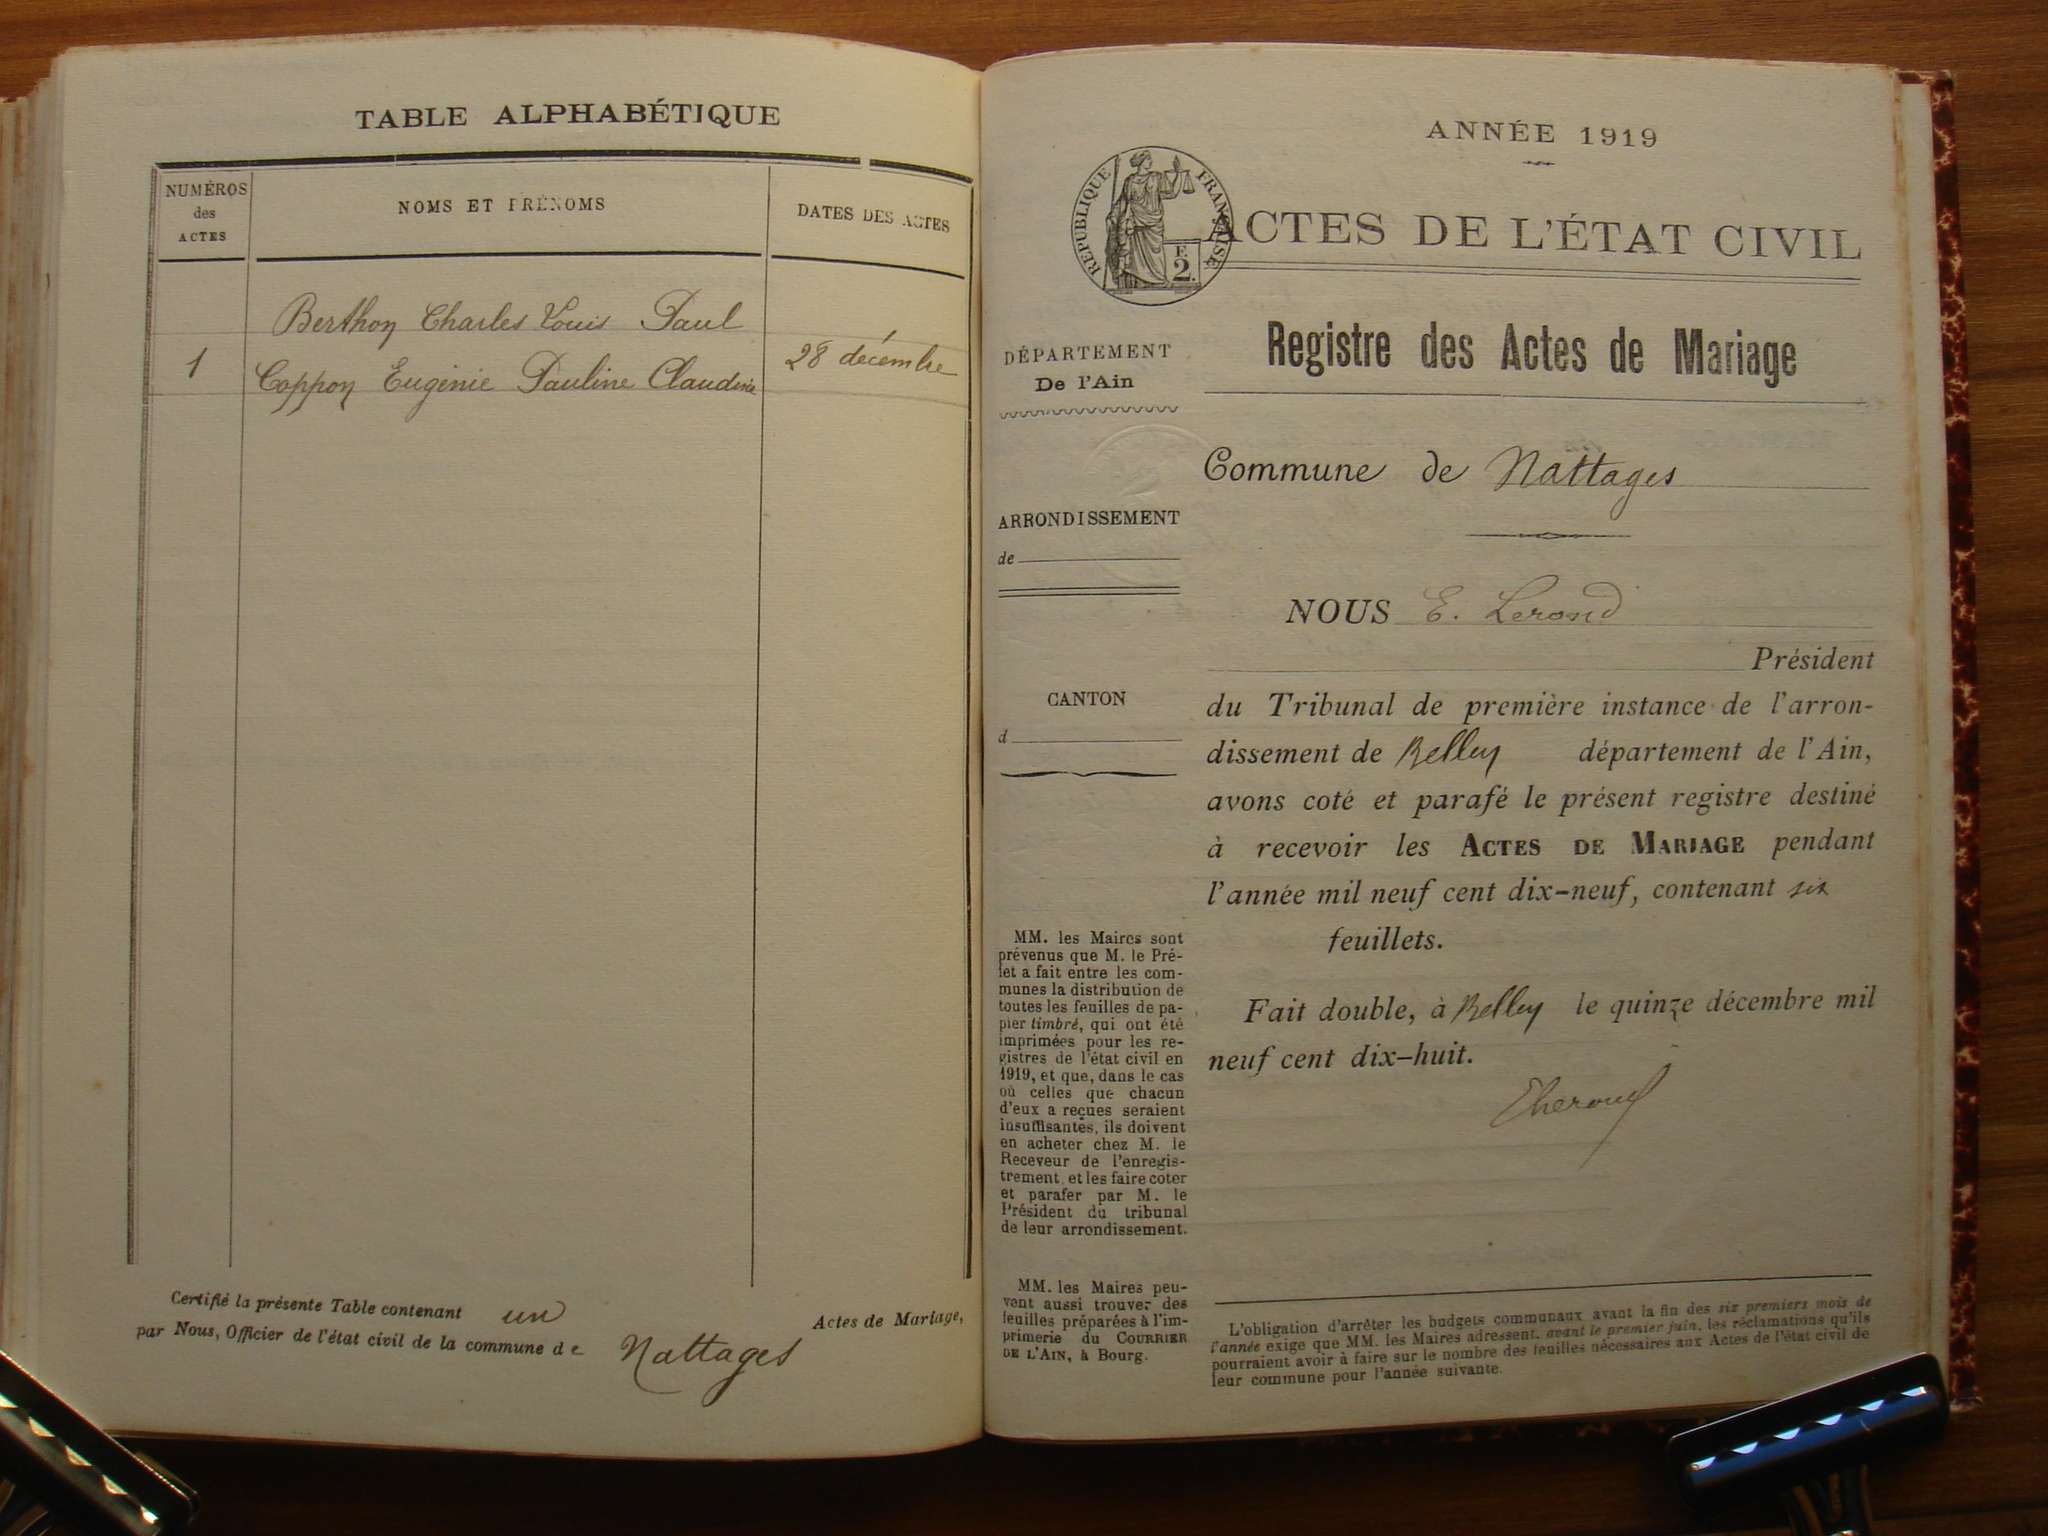 TABLE ALPHABÉTIQUE
NUMÉROS
des
ACTES
NOMS ET PRÉNOMS
DATES DES ACTES
Berthon Charles Louis Paul
1
Coppon Eugénie Pauline Claudine
28 décembre
Certifié la présente Table contenant un Actes de Mariage,
par Nous, Officier de l'état civil de la commune de Nattages
ANNÉE 1919
RÉPUBLIQUE FRANÇAISE
F.
2.
ACTES DE L'ÉTAT CIVIL
Registre des Actes de Mariage
DÉPARTEMENT
De l'Ain
ARRONDISSEMENT
de
CANTON
d
MM. les Maires sont
prévenus que M. le Pré-
fet a fait entre les com-
munes la distribution de
toutes les feuilles de pa-
pier timbré, qui ont été
imprimées pour les re-
gistres de l'état civil en
1919, et que, dans le cas
où celles que chacun
d'eux a reçues seraient
insuffisantes, ils doivent
en acheter chez M. le
Receveur de l'enregis-
trement, et les faire coter
et parafer par M. le
Président du tribunal
de leur arrondissement.
MM. les Maires peu-
vent aussi trouver des
feuilles préparées à l'im-
primerie du COURRIER
DE L'AIN, à Bourg.
Commune de Nattages
NOUS E. Lerond
Président
du Tribunal de première instance de l'arron-
dissement de Belley département de l'Ain,
avons coté et parafé le présent registre destiné
à recevoir les ACTES DE MARIAGE pendant
l'année mil neuf cent dix-neuf, contenant six
feuillets.
Fait double, à Belley le quinze décembre mil
neuf cent dix-huit.
L'obligation d'arrêter les budgets communaux avant la fin des six premiers mois de
l'année exige que MM. les Maires adressent, avant le premier juin, les réclamations qu'ils
pourraient avoir à faire sur le nombre des feuilles nécessaires aux Actes de l'état civil de
leur commune pour l'année suivante.